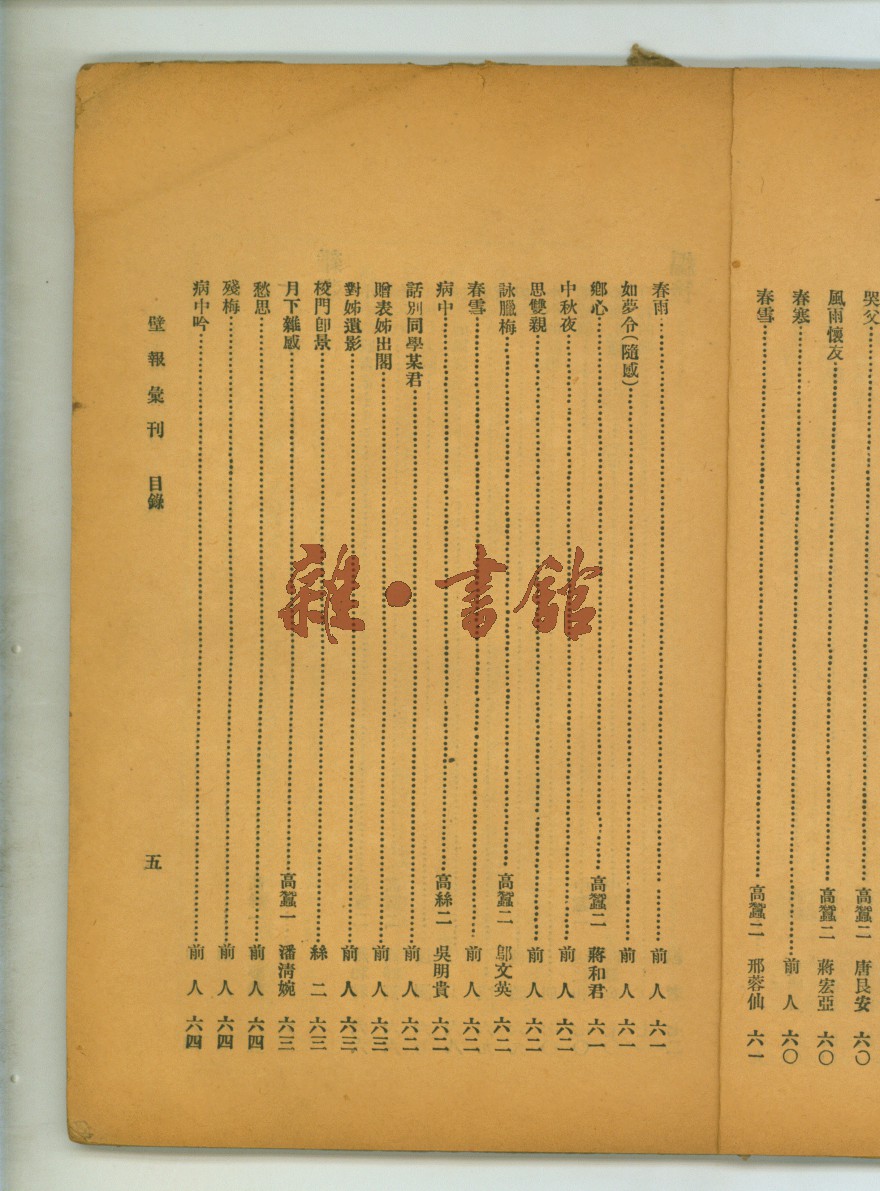 哭父 高蠶二 唐良安 六〇
風雨懷友 高蠶二 蔣宏亞 六〇
春寒 前人 六〇
春雪 高蠶二 邢蓉仙 六一
春雨 前人 六一
如夢令(隨感) 前人 六一
鄉心 高蠶二 蔣和君 六一
中秋夜 前人 六二
思雙親 前人 六二
詠臘梅 高蠶二 鄔文英 六二
春雪 前人 六二
病中 高絲二 吳明貴 六二
話別同學某君 前人 六二
贈表姊出閣 前人 六三
對姊遺影 前人 六三
校門卽景 絲二 六三
月下雜感 高蠶一 潘淸婉 六三
愁思 前人 六四
殘梅 前人 六四
病中吟 前人 六四
壁報彙刊 目錄 五
雜·書館